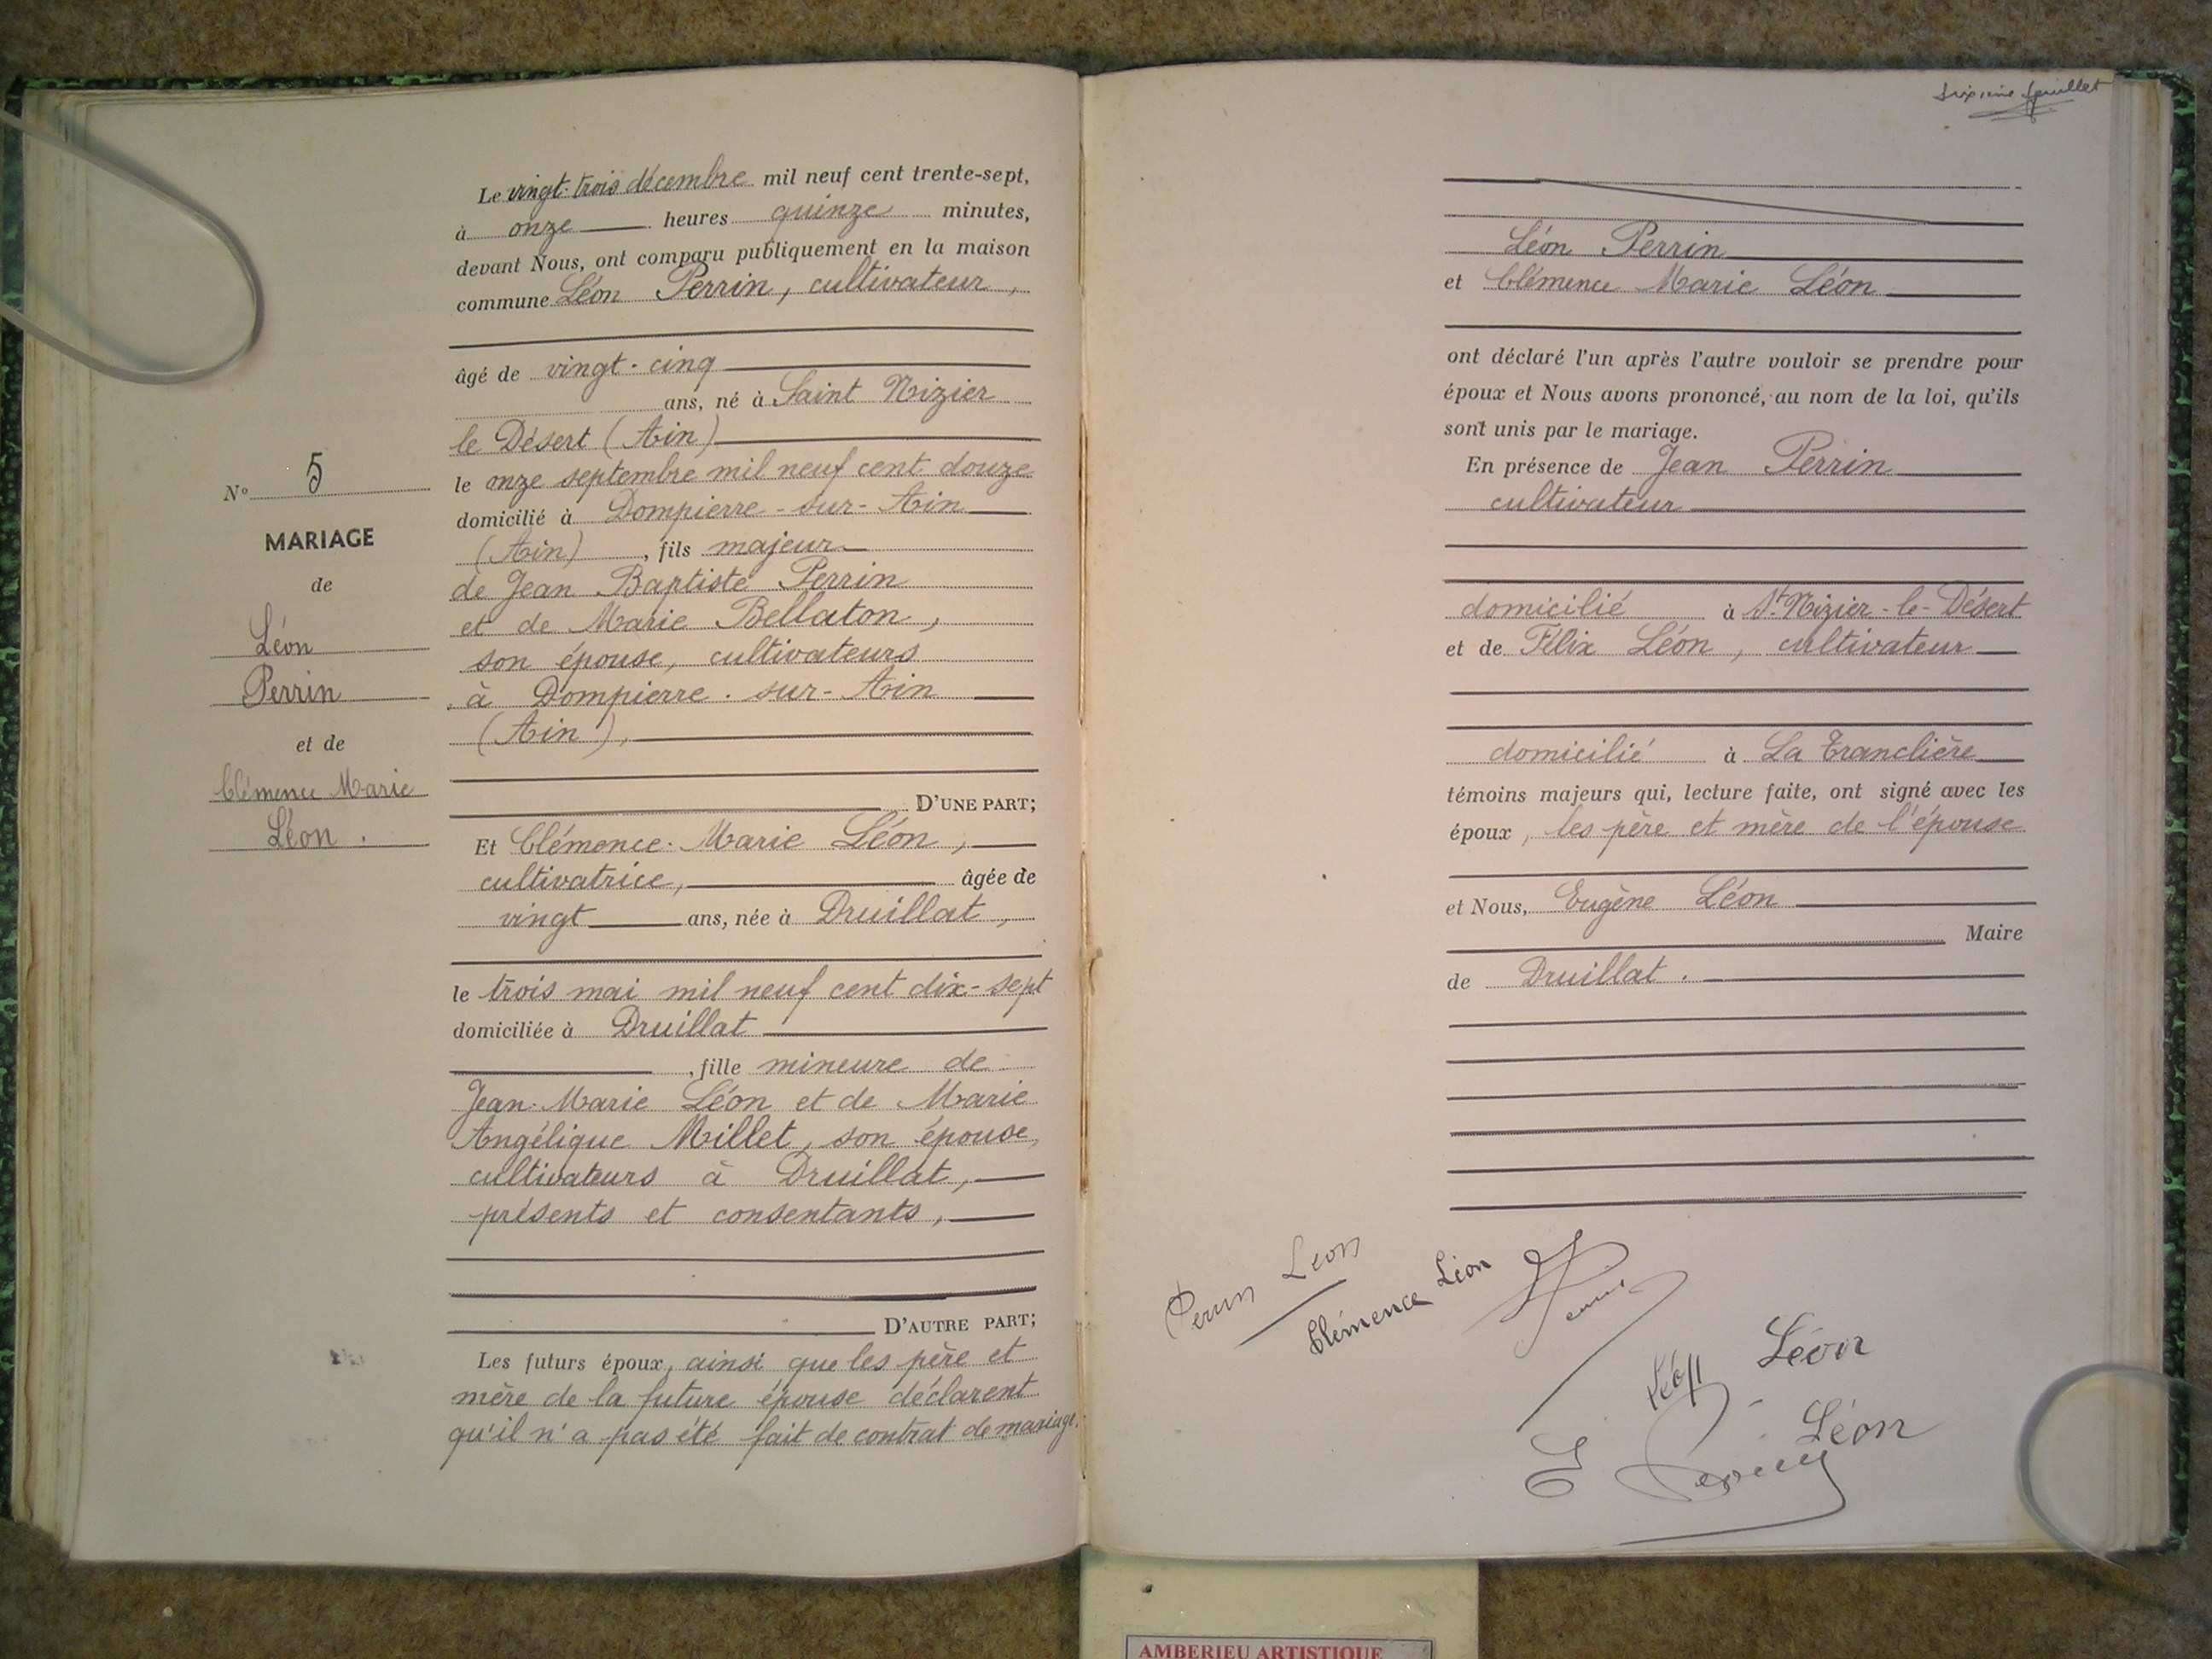 Nº 5
MARIAGE
de
Léon
Perrin
et de
Clémence Marie
Léon.
Le vingt-trois décembre mil neuf cent trente-sept,
à onze heures quinze minutes,
devant Nous, ont comparu publiquement en la maison
commune Léon Perrin, cultivateur,
âgé de vingt-cinq
ans, né à Saint Nizier
le Désert (Ain)
le onze septembre mil neuf cent douze
domicilié à Dompierre-sur-Ain
(Ain), fils majeur
de Jean Baptiste Perrin
et de Marie Bellaton,
son épouse, cultivateurs
à Dompierre-sur-Ain
(Ain),
D'UNE PART;
Et Clémence-Marie Léon,
cultivatrice, âgée de
vingt ans, née à Druillat,
le trois mai mil neuf cent dix-sept
domiciliée à Druillat
, fille mineure de
Jean-Marie Léon et de Marie
Angélique Millet, son épouse,
cultivateurs à Druillat,
présents et consentants,
D'AUTRE PART;
Les futurs époux, ainsi que les père et
mère de la future épouse déclarent
qu'il n'a pas été fait de contrat de mariage.
feuillet
Léon Perrin
et Clémence Marie Léon
ont déclaré l'un après l'autre vouloir se prendre pour
époux et Nous avons prononcé, au nom de la loi, qu'ils
sont unis par le mariage.
En présence de Jean Perrin
cultivateur
domicilié à St. Nizier-le-Désert
et de Félix Léon, cultivateur
domicilié à La Tranclière
témoins majeurs qui, lecture faite, ont signé avec les
époux, les père et mère de l'épouse
et Nous, Eugène Léon
Maire
de Druillat.
Perrin Léon
Clémence Léon
Léon
Léon
AMBERIEU ARTISTIQUE